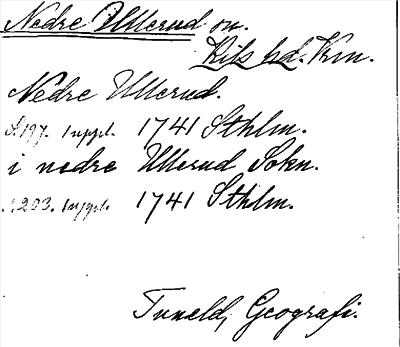 Nedre Ullerud sn.
Kils hd. Vrm.
Nedre Ullerud.
S. 197. 1 uppl. 1741 Sthlm.
i nedre Ullerud Sokn.
S. 203. 1 uppl. 1741 Sthlm.
Tuneld, Geografi.